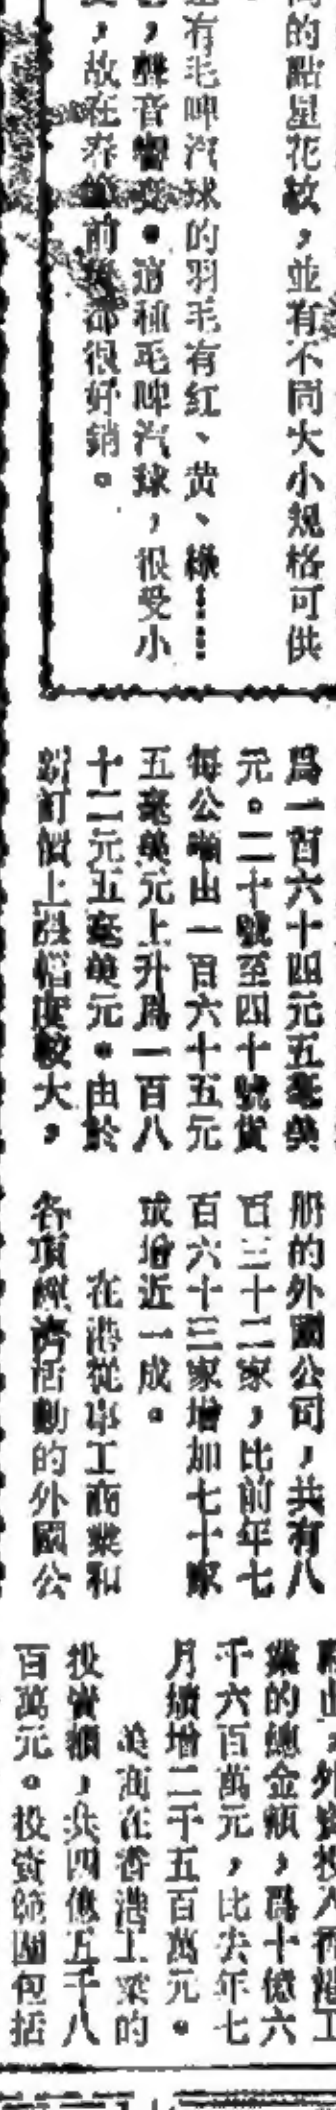 的點星花紋，並有不同大小規格可供
有毛啤汽球的羽毛有紅、黄、綠……
，聲音響亮。這種毛啤汽球，很受小
，故在春節前後都很好銷。
爲一百六十四元五毫美
元。二十號至四十號貨
每公噸由一百六十五元
五毫美元上升爲一百八
十二元五毫美元。由於
新訂價上漲幅度較大，
册的外國公司，共有八
百三十二家，比前年七
百六十三家增加七十家
或增近一成。
在港從事工商業和
各項經濟活動的外國公
止，外資投入香港工
業的總金額，爲十億六
千六百萬元，比去年七
月續增二千五百萬元。
美商在香港工業的
投資額，共四億五千八
百萬元。投資範圍包括